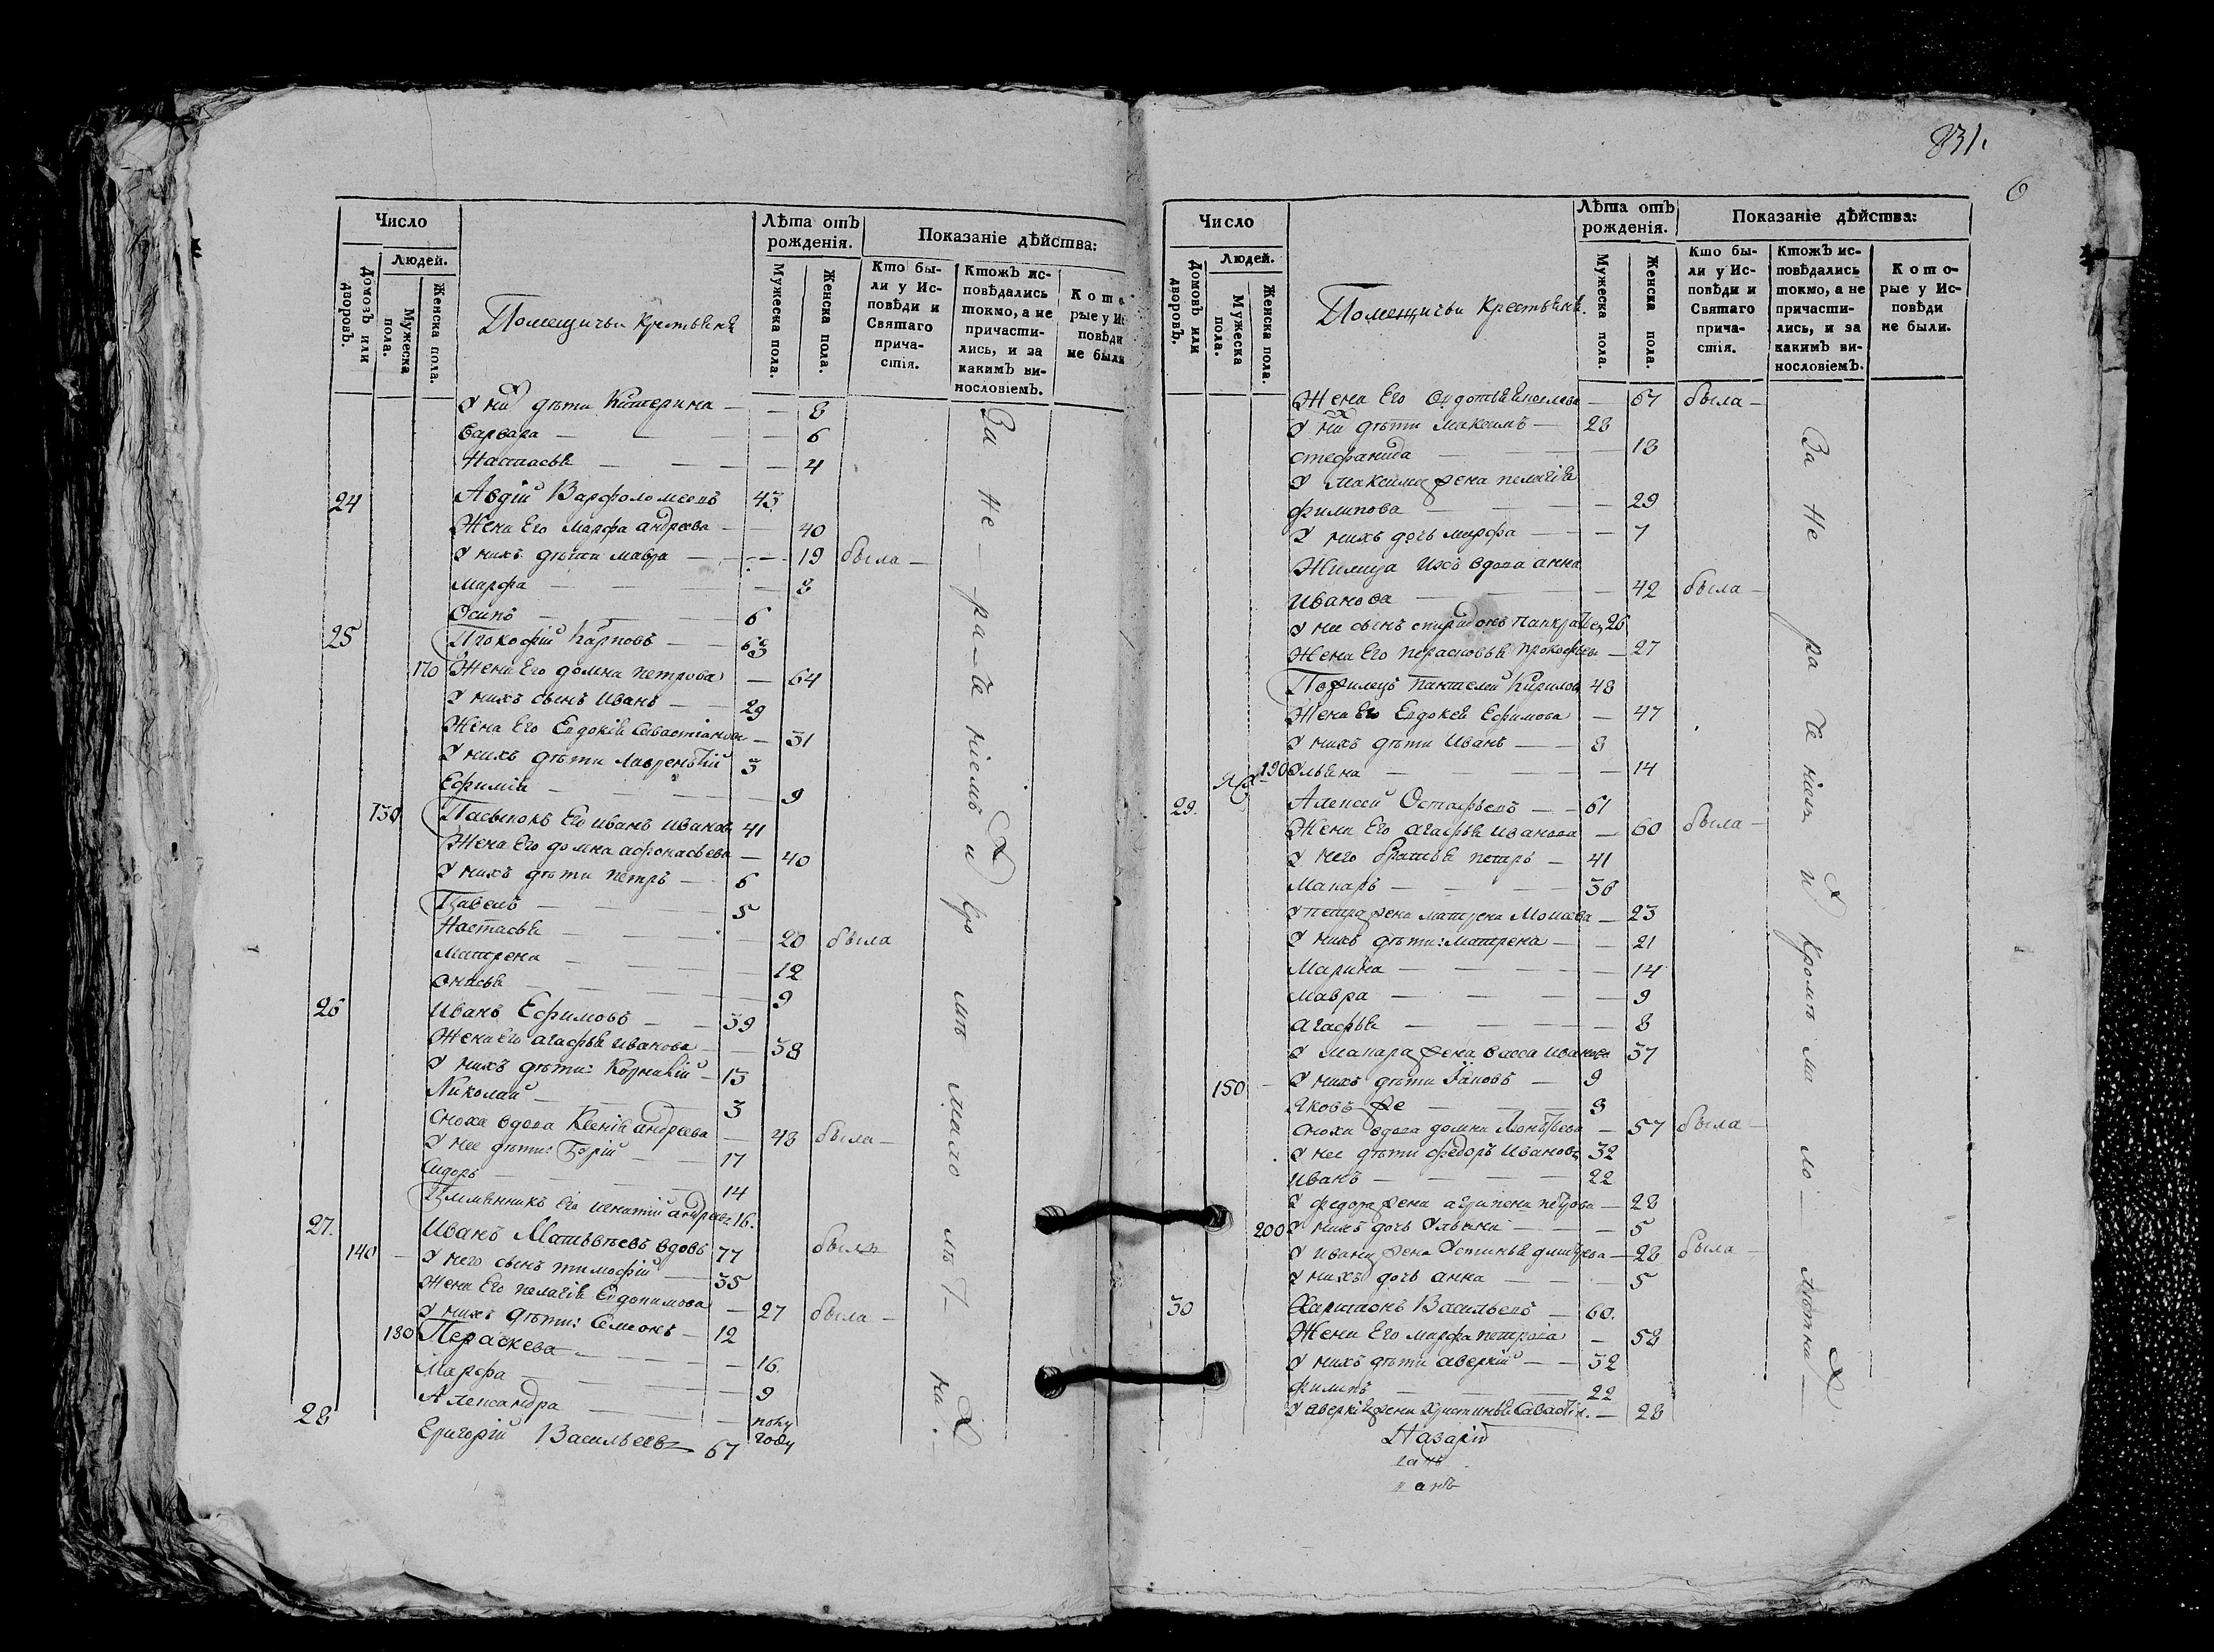 Число
Людей.
Домовъ или дворовъ.
Мужеска пола.
Женска пола.
Помещичьи крестьяне
Лѣта отъ рожденія.
Мужеска пола.
Женска пола.
Показаніе дѣйства:
Кто бы-
ли у Ис-
повѣди и
Святаго
прича-
стія.
Ктожъ ис-
повѣдались
токмо, а не
причасти-
лись, и за
какимъ ви-
нословіемъ.
Кото
рые у Ис
повѣди
не были
У них дѣти Катерина — — 8
Варвара — 6
Настасья — 4
24 Авдій Варфоломеевъ 43
Жена Его марфа андреева — 40
У нихъ дѣти мавра — 19 была —
Марфа — 8
Осипъ — 6
25 Прокофій Карповъ — 63
170 Жена Его домна петрова — 64
У нихъ сынъ Иванъ — 29
Жена Его Евдокія Севастіанова — 31
У нихъ дѣти Лаврентій 3
Ефимія — 9
130 Пасынокъ Его иванъ иванов 41
Жена Его домна афонасьева — 40
У нихъ дѣти петръ — 6
Павелъ — 5
Настасья — 20 была
Матрена — 12
Онисья — 9
26 Иванъ Ефимовъ — 39
Жена Его агафья иванова — 38
У нихъ дѣти: Корнилій — 13
Николай — 3
Сноха вдова Ксенія андреева — 48 была —
У нее дѣти: — 17
Сидоръ — 14
Племянникъ Его андреевъ 16.
27. Иванъ Матвѣевъ вдовъ 77 былъ
140 — У него сынъ тимофій — 35
Жена Его пелагія Евдокимова — 27 была —
У нихъ дѣти: Семионъ — 12
180 Пераскева — 16.
Марфа — 9
Александра — полу году
28 Григорій Васильевъ 67
За не раченіемъ и кро мѣ мало лѣт ных
831.
6
Число
Людей.
Домовъ или дворовъ.
Мужеска пола.
Женска пола.
Помещичьи крестьяне.
Лѣта отъ рожденія.
Мужеска пола.
Женска пола.
Показаніе дѣйства:
Кто бы-
ли у Ис-
повѣди и
Святаго
прича-
стія.
Ктожъ ис-
повѣдались
токмо, а не
причасти-
лись, и за
какимъ ви-
нословіемъ.
Кото-
рые у Ис-
повѣди
не были.
Жена Его — 67 была —
У них дѣти Максимъ — 28
Стефанида — 18
У Максима жена пелагія
Филипова — 29
У нихъ дочь марфа — 7
Жилица ихъ вдова анна
Иванова — 42 была —
У нее сынъ спиридонъ 26
Жена Его перасковья прокофьева — 27
Пожилецъ Пантелей Кирилов 48
Жена Его Евдокея Ефимова — 47
У нихъ дѣти Иванъ — 8
190 Ульяна — 14
29. Алексей Остафьевъ — 61
Жена Его агафья иванова — 60 была —
У него братья петръ — 41
Макаръ — 36
У петра жена матрена — 23
У нихъ дѣти: матрена — 21
Марина — 14
Мавра — 9
Агафья — 8
У макара жена иванова 37
150 — У нихъ дѣти — 9
Яковъ же — 3
Сноха вдова домна Леонтьева — 57 была —
У нее дѣти федоръ Ивановъ 32
Иванъ — 22
У федора жена агрипена петрова — 28
200 У нихъ дочь Ульяна — 5
У ивана жена Устинья дмитрева — 28 была —
У нихъ дочь анна — 5
30 Харитонъ Васильевъ — 60.
Жена Его марфа петрова — 58
У нихъ дѣти аверкій — 32
Филипъ — 22
У аверкія жена христинья Савастіян. — 28
За не раченіем и кромѣ ма ло лѣтных
Назарій